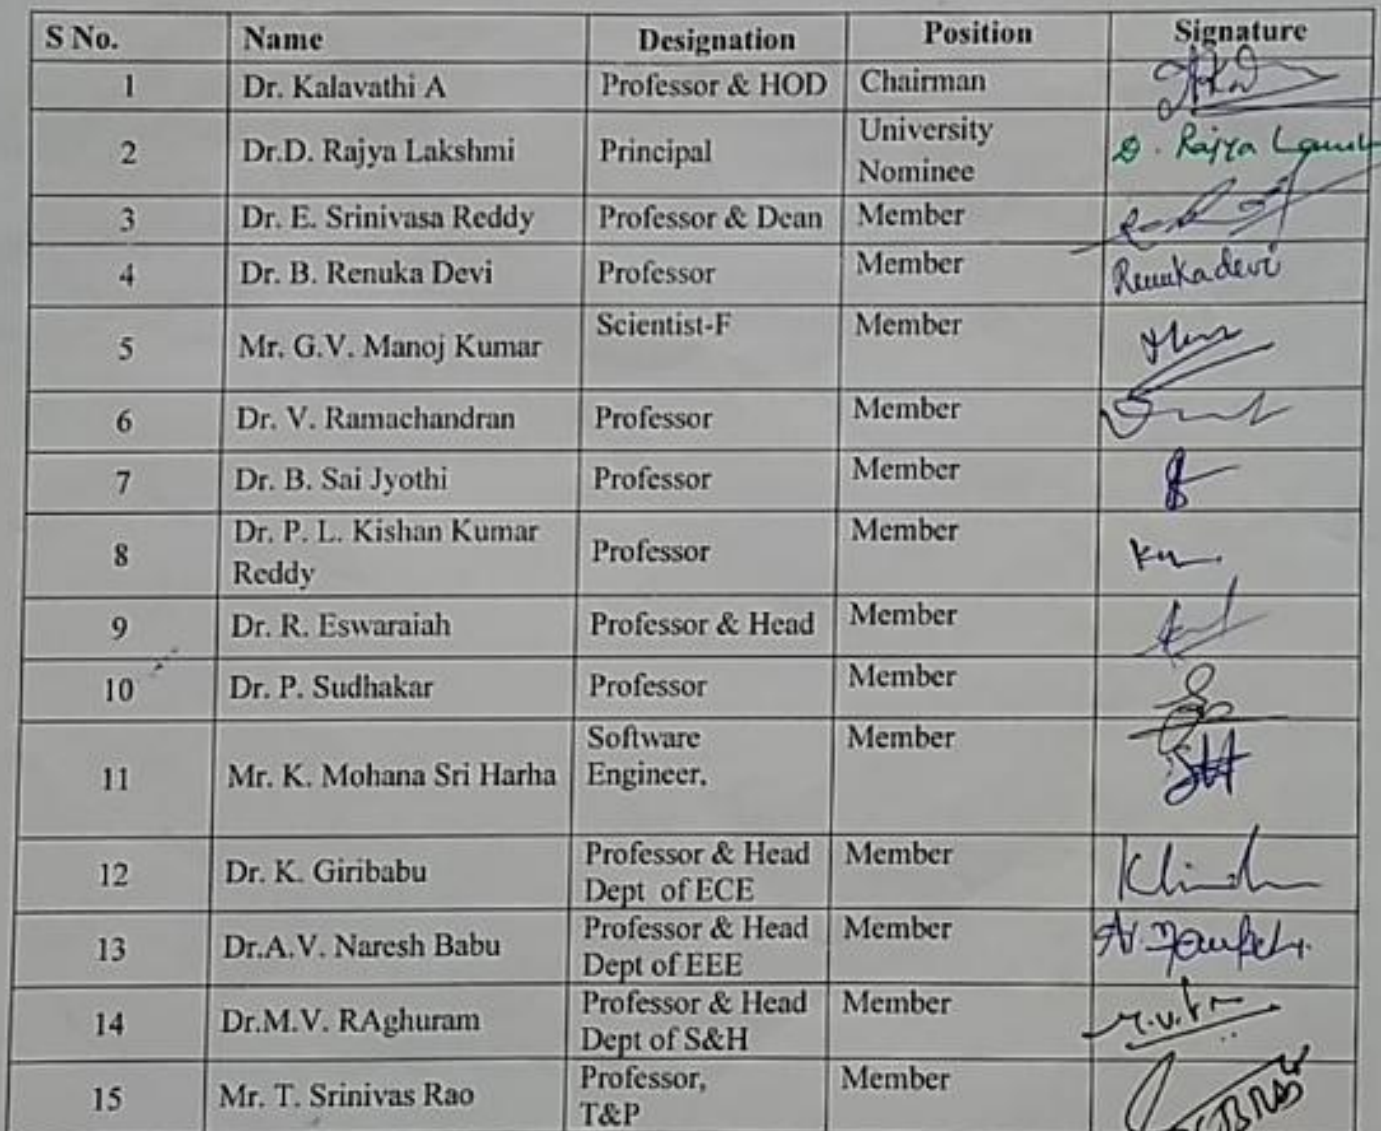 S No. Name Designation Position Signature
1 Dr. Kalavathi A Professor & HOD Chairman
2 Dr.D. Rajya Lakshmi Principal University
Nominee D. Rajya
3 Dr. E. Srinivasa Reddy Professor & Dean Member
4 Dr. B. Renuka Devi Professor Member Renukadevi
5 Mr. G.V. Manoj Kumar Scientist-F Member
6 Dr. V. Ramachandran Professor Member
7 Dr. B. Sai Jyothi Professor Member
8 Dr. P. L. Kishan Kumar
Reddy Professor Member
9 Dr. R. Eswaraiah Professor & Head Member
10 Dr. P. Sudhakar Professor Member
11 Mr. K. Mohana Sri Harha Software
Engineer. Member
12 Dr. K. Giribabu Professor & Head
Dept of ECE Member
13 Dr.A.V. Naresh Babu Professor & Head
Dept of EEE Member
14 Dr.M.V. RAghuram Professor & Head
Dept of S&H Member
15 Mr. T. Srinivas Rao Professor,
T&P Member